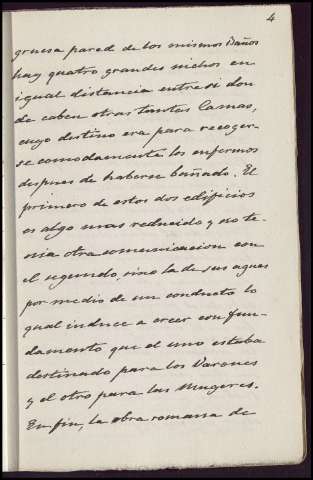 4
gruesa pared de los mismos Baños
hay quatro grandes nichos en
igual distancia entre si don
de caben otras tantas Camas,
cuyo destino era para recoger-
se comodamente los enfermos
despues de haberse bañado. El
primero de estos dos edificios
es algo mas reducido y no te-
nia otra comunicacion con
el segundo, sino la de sus agues
por medio de un conducto lo
qual induce a creer con fun-
damento que el uno estaba
destinado para los Varones
y el otro para las Mugeres.
En fin, la obra romana de